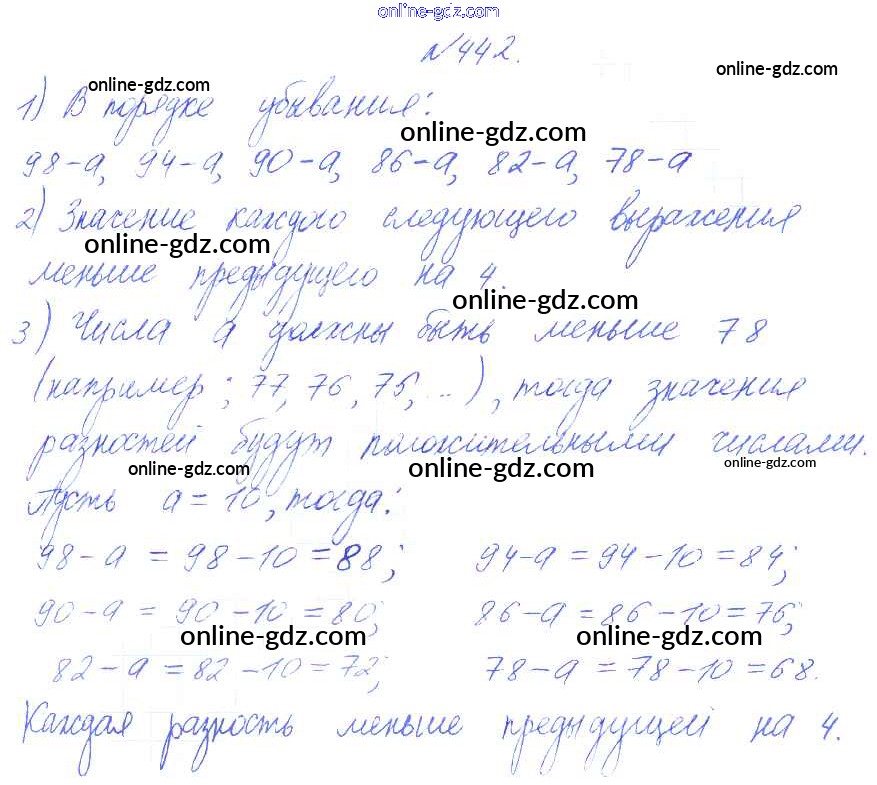 online-gdz.com
№442.
online-gdz.com online-gdz.com
1) В порядке убывания:
online-gdz.com
98-а, 94-а, 90-а, 86-а, 82-а, 78-а
2) Значение каждого следующего выражения
online-gdz.com
меньше предыдущего на 4.
online-gdz.com
3) Числа а должны быть меньше 78
(например; 77, 76, 75, ...), тогда значения
разностей будут положительными числами.
online-gdz.com online-gdz.com online-gdz.com
Пусть а = 10, тогда:
98-а = 98-10 = 88; 94-а = 94-10 = 84;
90-а = 90-10 = 80; 86-а = 86-10 = 76;
online-gdz.com online-gdz.com
82-а = 82-10 = 72; 78-а = 78-10 = 68.
Каждая разность меньше предыдущей на 4.
online-gdz.com online-gdz.com